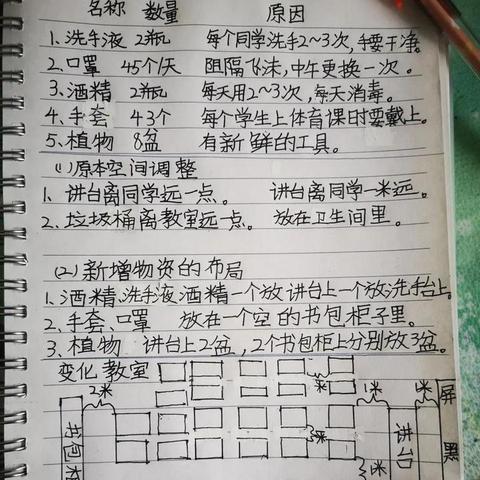 名称 数量 原因
1.洗手液 2瓶 每个同学洗手2~3次,手要干净。
2.口罩 45个/天 阻隔飞沫,中午更换一次。
3.酒精 2瓶 每天用2~3次,每天消毒。
4.手套 43个 每个学生上体育课的要戴上。
5.植物 8盆 有新鲜的工具。
(1)原本空间调整
1.讲台离同学远一点。 讲台离同学一米远。
2.垃圾桶离教室远一点。 放在卫生间里。
(2)新增物资的布局
1.酒精、洗手液 酒精一个放讲台上一个放洗手台上。
2.手套、口罩 放在一个空的书包柜子里。
3.植物 讲台上2盆,2个书包柜上分别放3盆。
变化教室
2米 米 1米 米 屏
书包柜 米 讲台 黑
1米